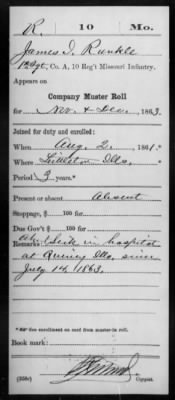 R. 10 Mo.
James I. Runkle
1 Sgt, Co. A, 10 Reg't Missouri Infantry.
Appears on
Company Muster Roll
for Nov. & Dec., 1863.
Joined for duty and enrolled:
When Aug. 2, 1861.*
Where Ills.
Period 3 years.*
Present or absent Absent
Stoppage, $ 100 for
Due Gov't $ 100 for
Remarks: Sick in hospital
at Quincy Ills. since
July 14, 1863.
*See enrollment on card from muster-in roll.
Book mark:
(358c) Copyist.